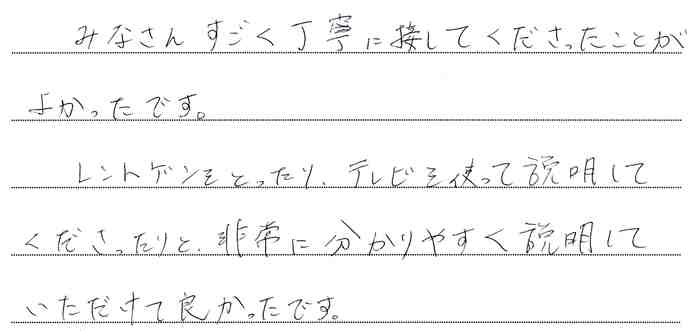 みなさん すごく丁寧に接してくださったことが
よかったです。
レントゲンをとったり、テレビを使って説明して
くださったりと、非常に分かりやすく説明して
いただけて良かったです。